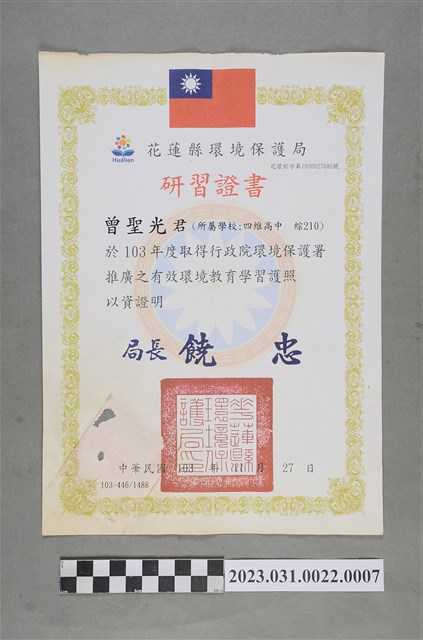 Hualien
花蓮縣環境保護局
花環綜字第1030027085號
研習證書
曾聖光君(所屬學校:四維高中 綜210)
於103年度取得行政院環境保護署
推廣之有效環境教育學習護照
以資證明
局長 饒忠
花蓮縣環境保護局印
中華民國 103 年 11 月 27 日
103-446/1486
2023.031.0022.0007